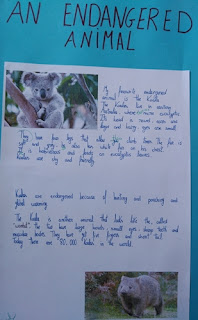 AN ENDANGERED
ANIMAL
My favourite endangered
animal is the Koala
The Koala live in eucalyp
Australia, where eucalyptus
It's head is round, ears are
large and heavy eyes are small.
They have four legs that allow to climb trees. The fur is
soft and grey. It also has white fur on his chest.
It is herbivorous and feeds on eucalyptus leaves.
Koalas are shy and friendly.
Koalas are endangered because of hunting and poaching and
global warming.
The Koala is another animal that looks like this, called
"wombat", the two have large heads, small eyes, sharp teeth and
muscular bodies. They have got five fingers and short tail.
Today there are 80.000 Koalas in the world.